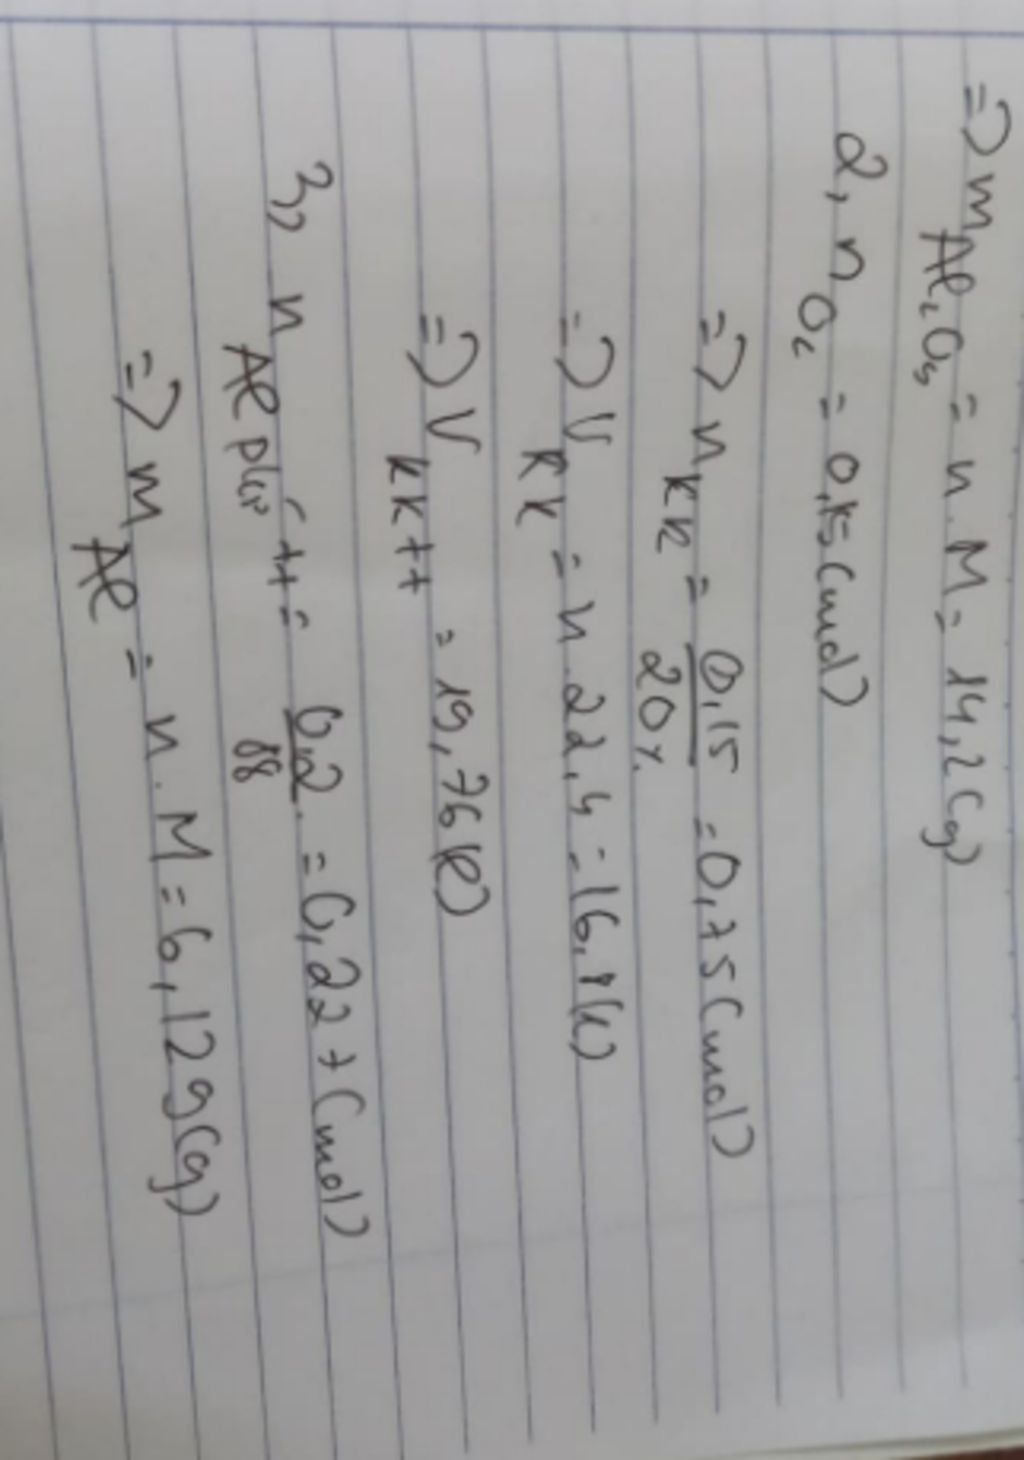 => m Al₂O₃ = n.M = 14,2(g)
2, n O₂ = 0,15(mol)
=> n kk = 0,15/20% = 0,75(mol)
=> V kk = n.22,4 = 16,8(l)
=> V kktt = 19,76(l)
3, n Al pứ tt = 0,2/88 = 0,227(mol)
=> m Al = n.M = 6,129(g)